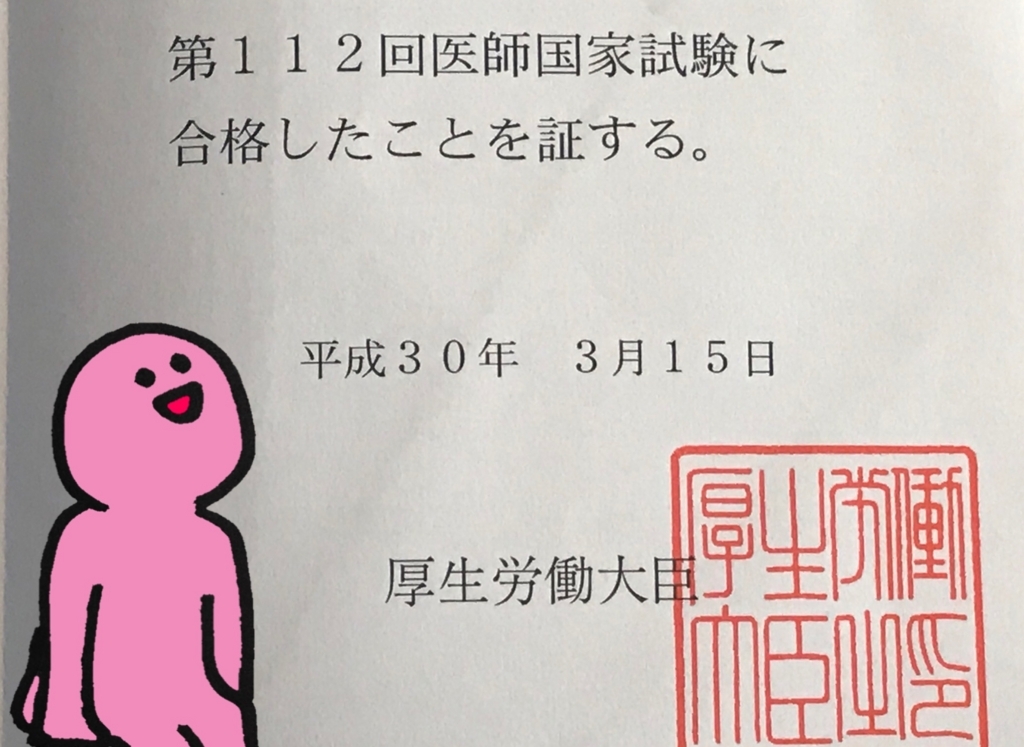 第１１２回医師国家試験に
合格したことを証する。
平成３０年　３月１５日
厚生労働大臣
厚生労働
大臣之印